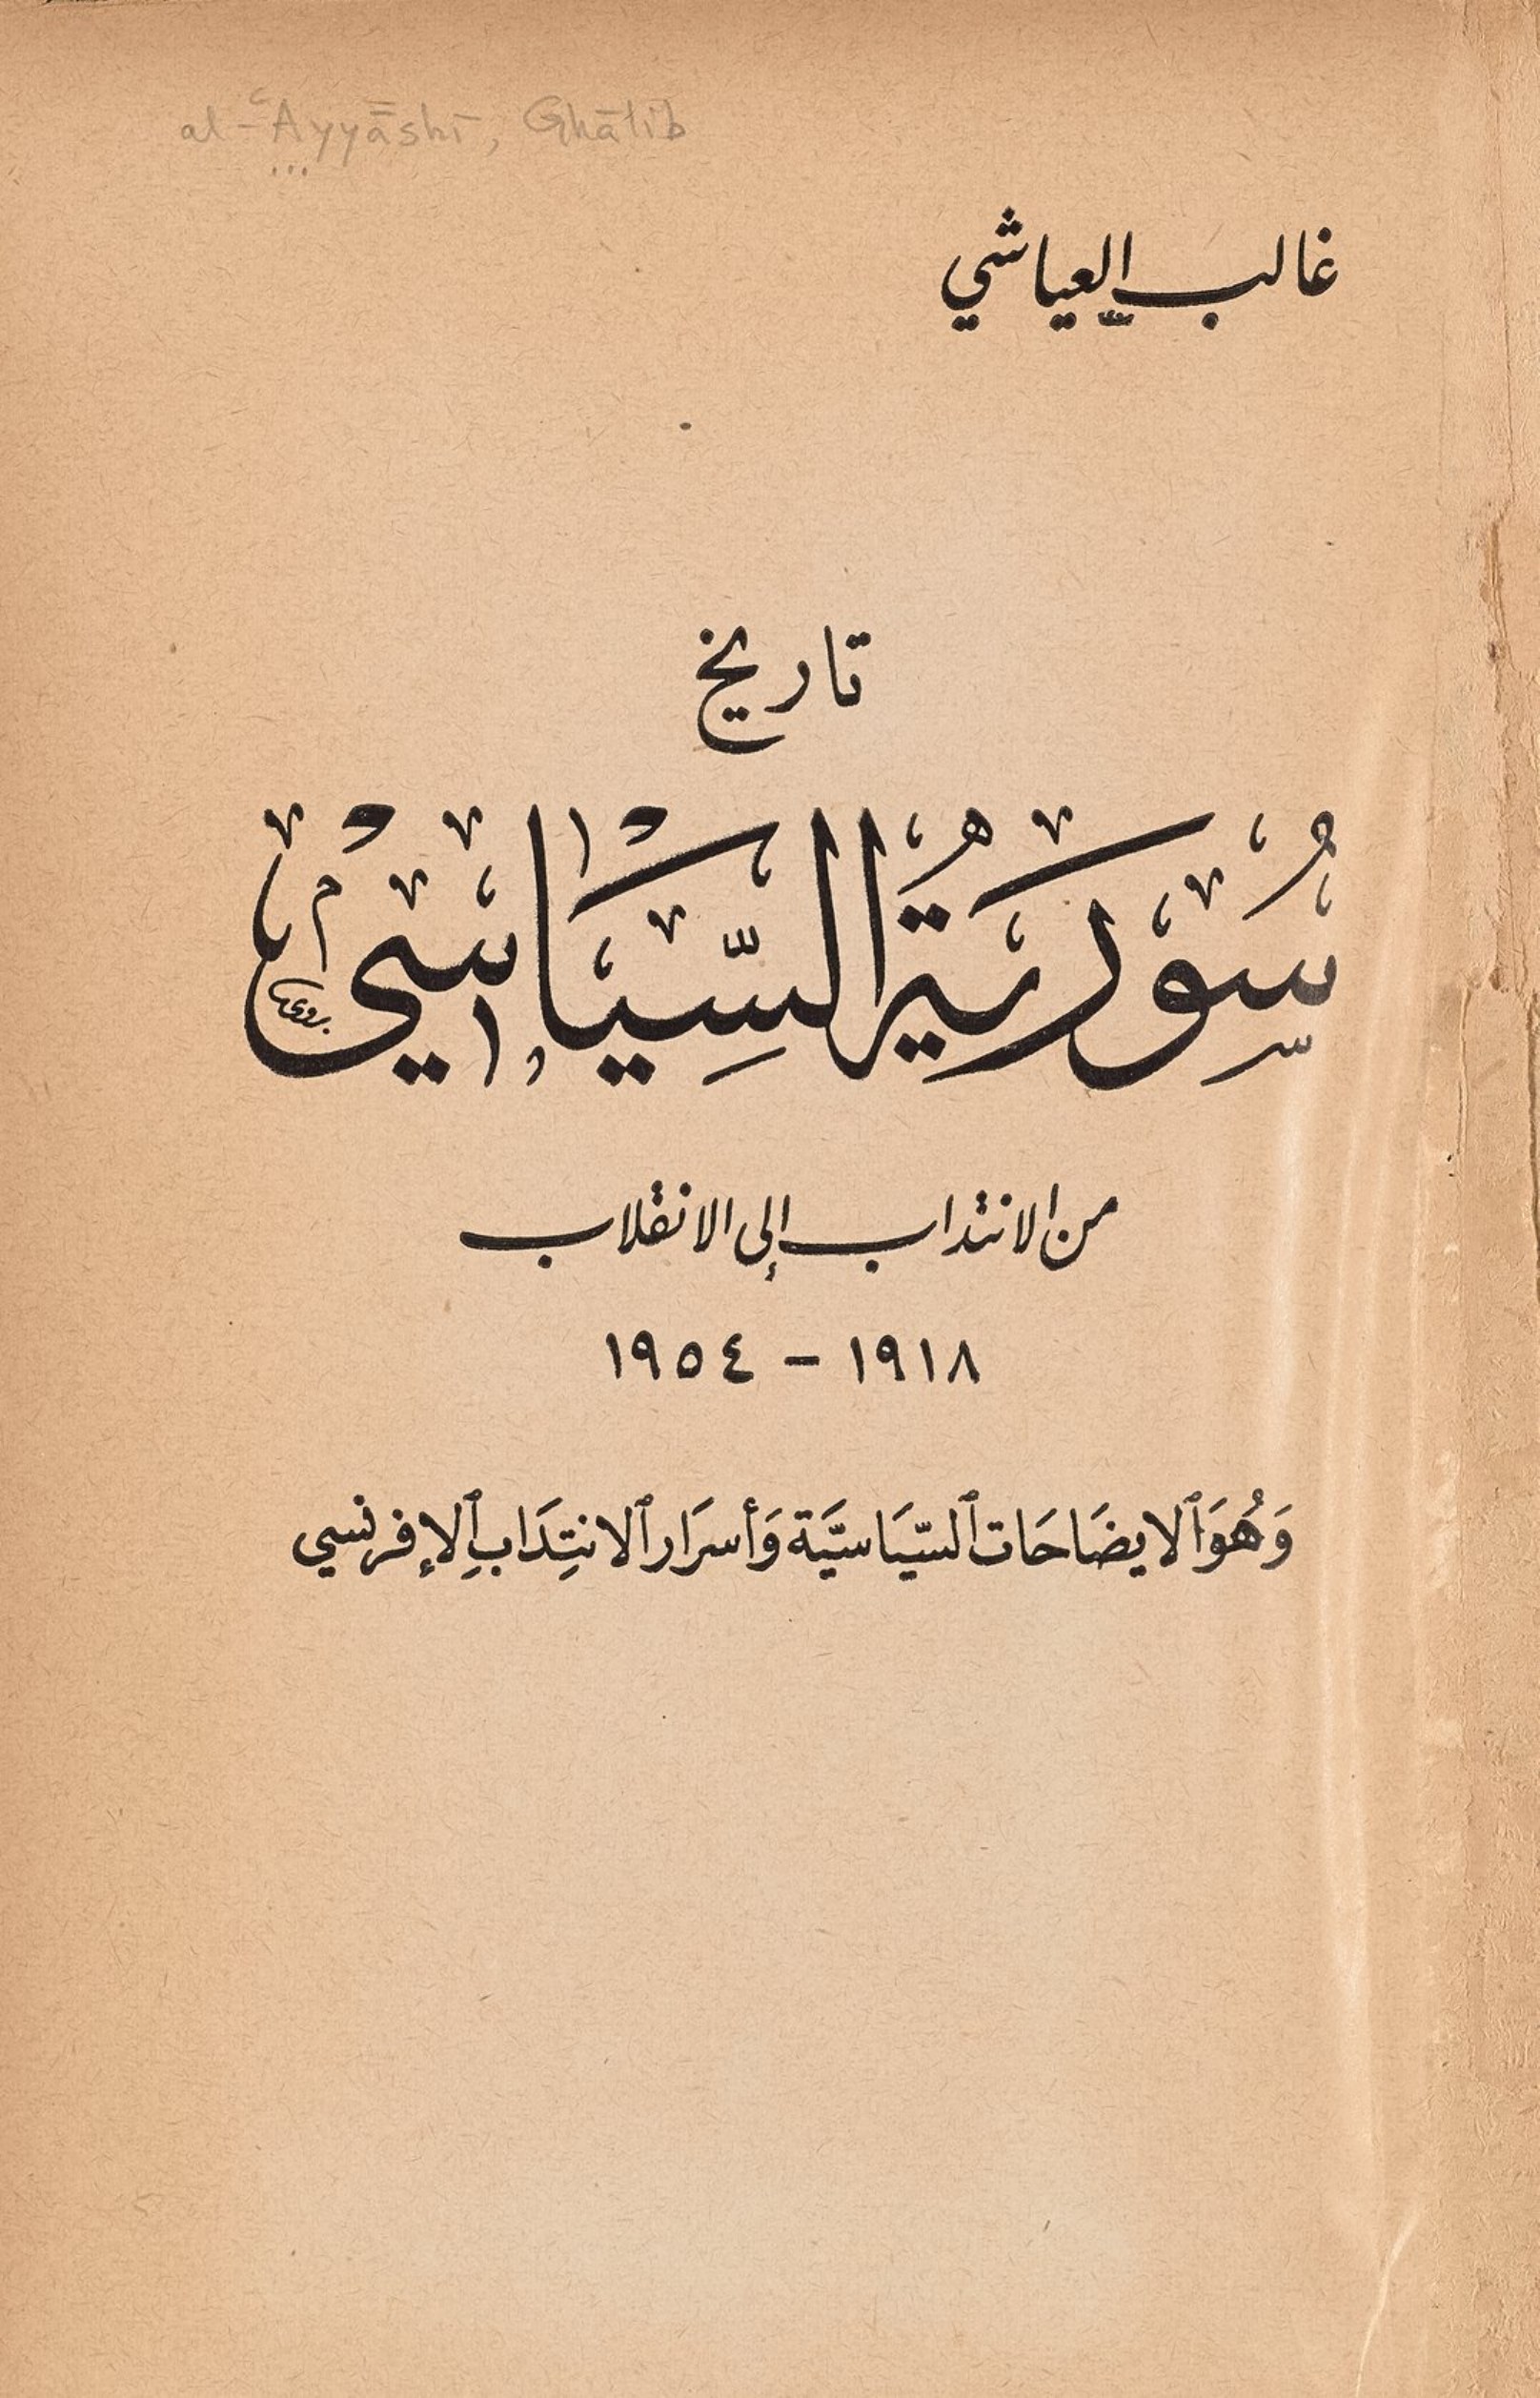 al-ʿAyyāshī, Ghālib
غالب العياشي
تاريخ
سُورية السِّيَاسيْ
من الانتداب إلى الانقلاب
١٩١٨ - ١٩٥٤
وَهُوَ ٱلايضَاحَات ٱلسّيَاسيَّة وَأسرَار ٱلانتِدَابِ ٱلإفرنسي